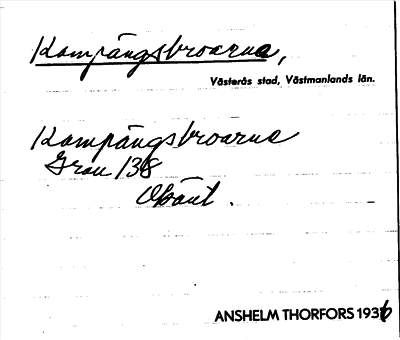 Kampängsbroarna,
Västerås stad, Västmanlands län.
Kampängsbroarna
Grau 138
Obänt.
ANSHELM THORFORS 1936